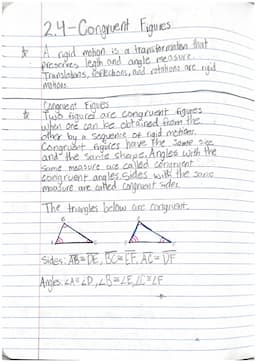 2.4-Congruent Figures
A rigid motion is a transformation that
preserves length and angle measure.
Translations, reflections, and rotations are rigid
motions.
Congruent Figures
Two figures are congruent figures
when one can be obtained from the
other by a sequence of rigid motions.
Congruent figures have the same size
and the same shape. Angles with the
same measure are called congruent
congruent angles. sides with the same
measure are called congruent sides.
The triangles below are congruent.
Sides: AB≅DE, BC≅EF, AC≅DF
Angles: ∠A≅∠D, ∠B≅∠E, ∠C≅∠F